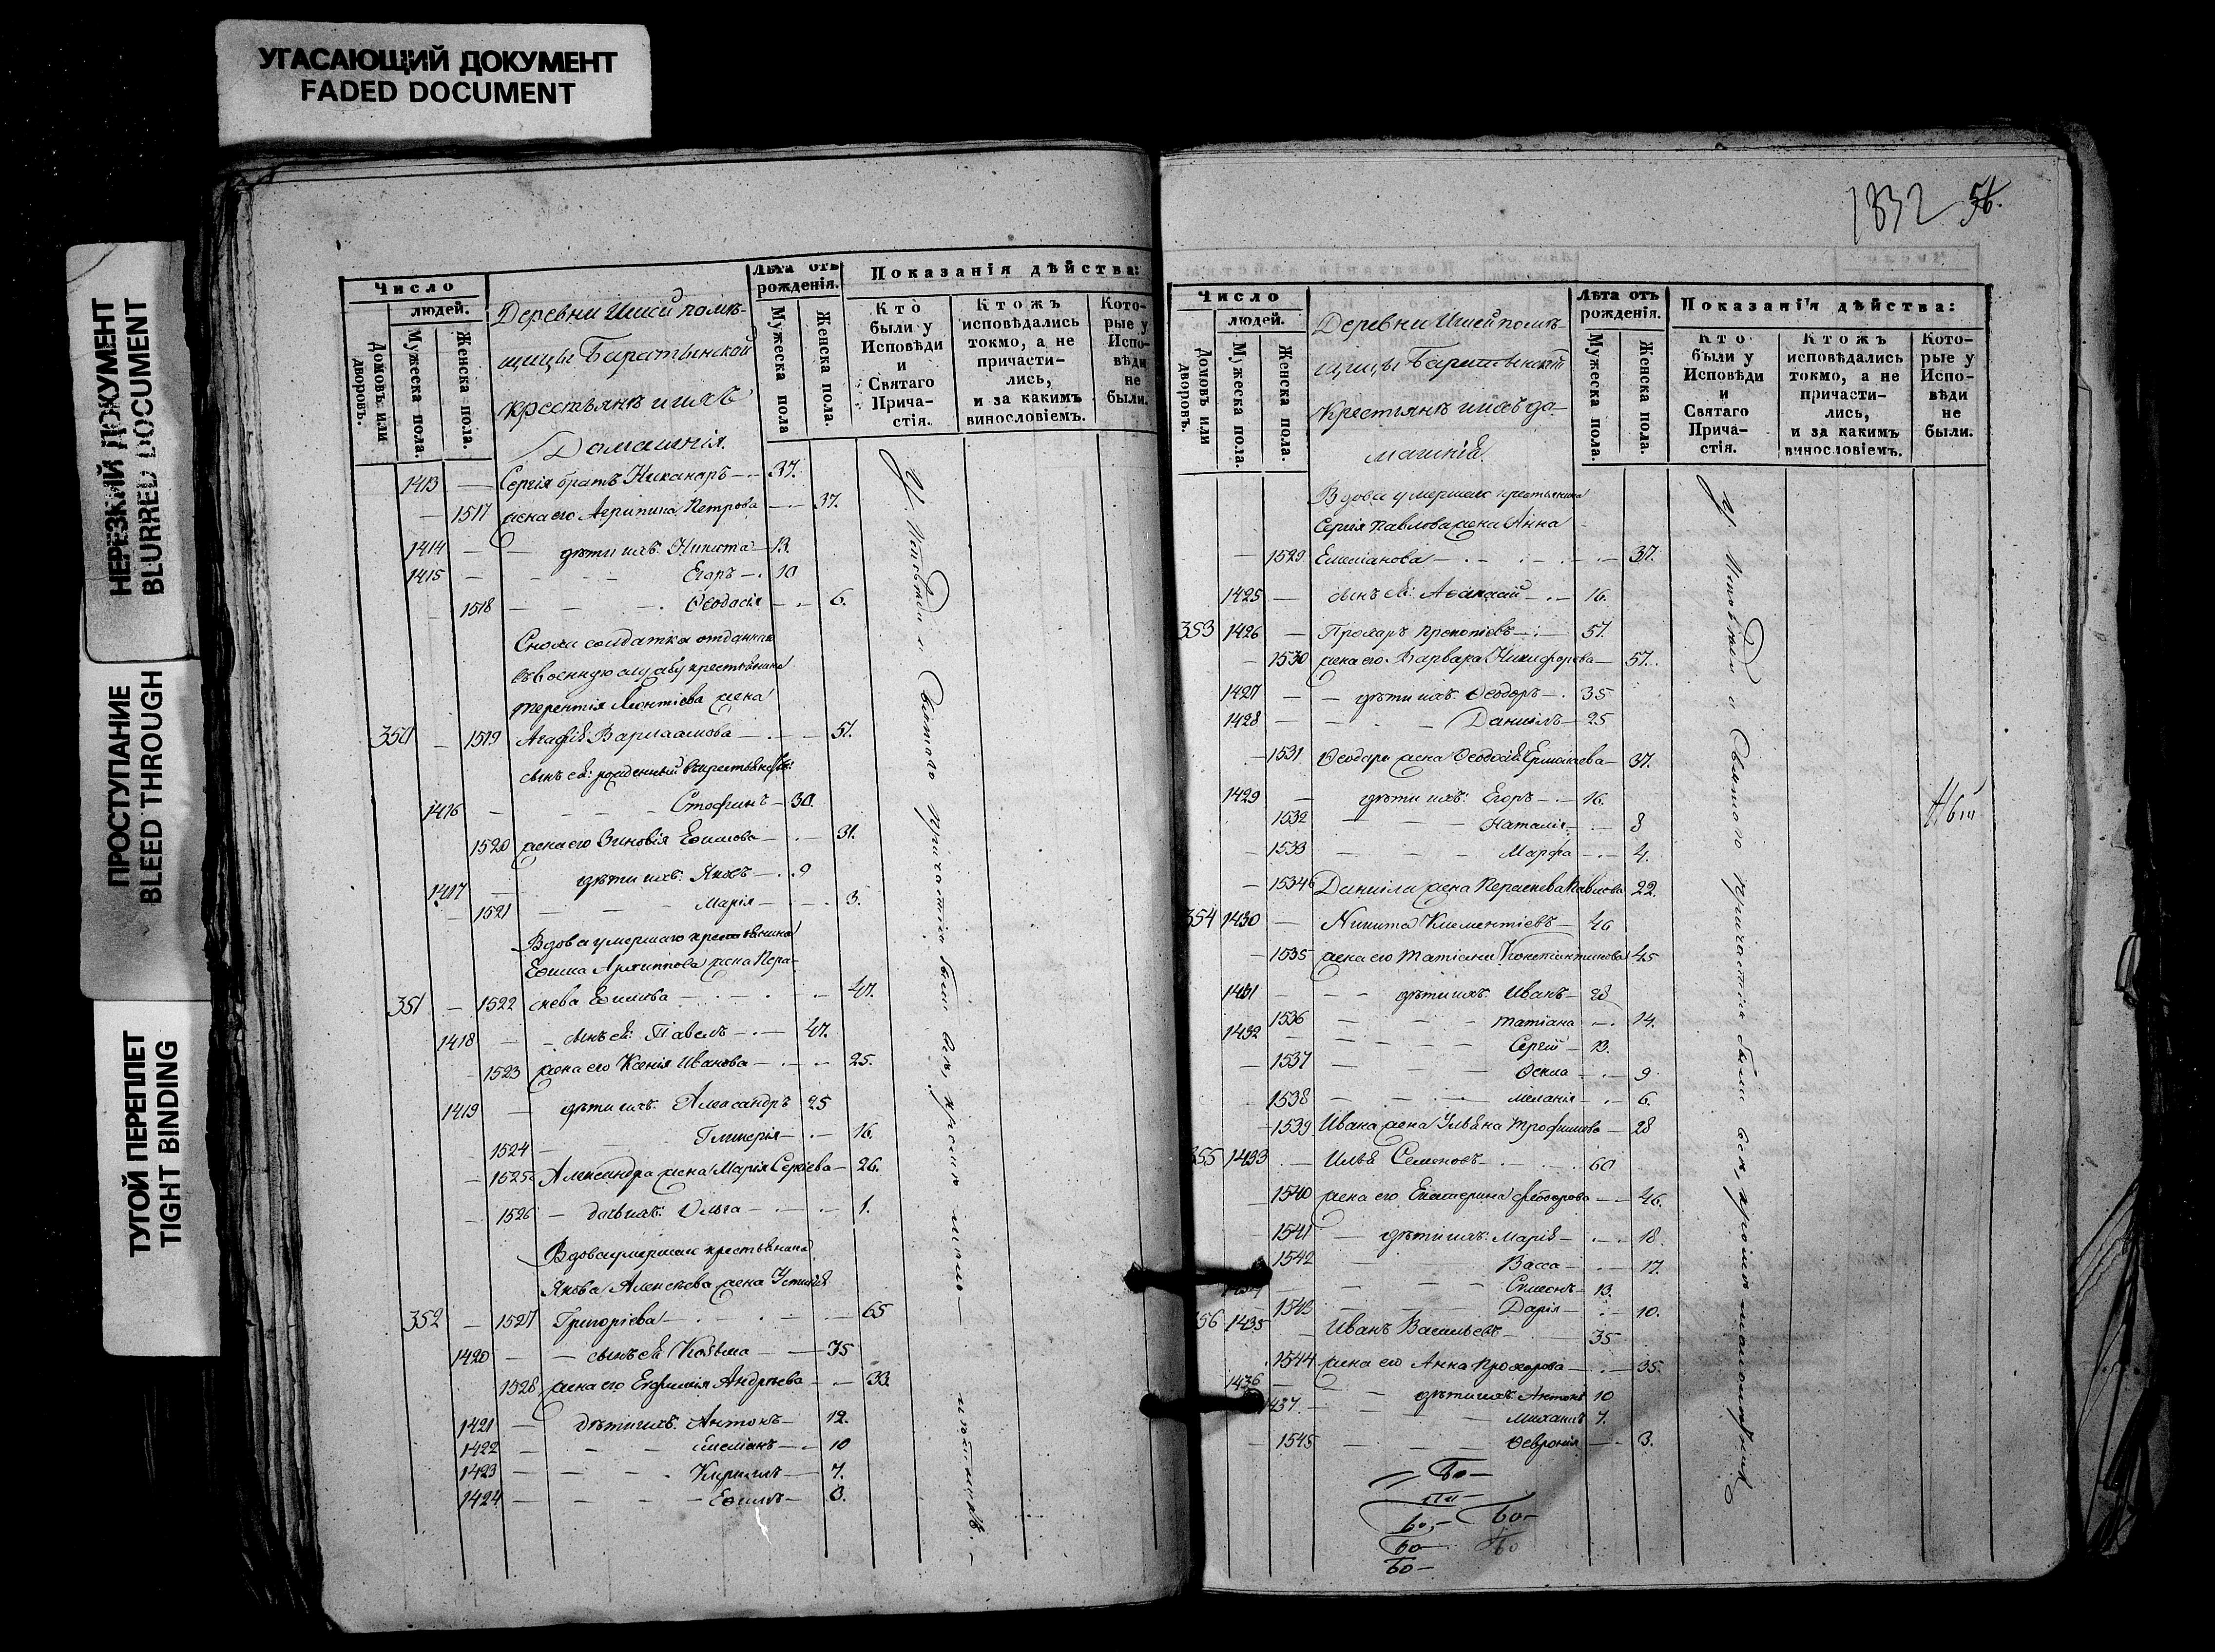 УГАСАЮЩИЙ ДОКУМЕНТ
FADED DOCUMENT
НЕРЕЗКИЙ ДОКУМЕНТ
BLURRED DOCUMENT
ПРОСТУПАНИЕ
BLEED THROUGH
ТУГОЙ ПЕРЕПЛЕТ
TIGHT BINDING
Число
людей.
Домовъ или дворовъ.
Мужеска пола.
Женска пола.
Деревни помѣ-
щицы Баратынской
крестьянъ и ихъ
Домашнія.
Лѣта отъ рожденія.
Мужеска пола
Женска пола.
Показанія дѣйства:
Кто были у Исповѣди и Святаго Прича-стія.
Ктожъ исповѣдались токмо, а не причасти-лись, и за какимъ винословіемъ.
Кото-рые у Испо-вѣди не были.
1413 — Сергія братъ Никаноръ — 37.
— 1517 жена его Агрипина Петрова — 37.
1414 — дѣти ихъ: Никита — 13.
1415 — Егоръ — 10
1518 — Ѳеодосія — 6.
Сноха солдатка отданнаго
въ военную службу крестьянина
Терентія Леонтіева жена
350 — 1519 Агафія Варлаамова — 51.
сынъ ея: рожденный въ крестьянствѣ:
1416 — 30.
1520 жена его Зиновія Ефимова — 31.
1417 — дѣти ихъ: Яковъ — 9
— 1521 — Марія — 3.
Вдова умершаго крестьянина
Ефима Архиппова жена Пера-
351 — 1522 скева Ефимова — 47.
1418 — сынъ ея: Павелъ — 47.
— 1523 жена его Ксенія Иванова — 25.
1419 — дѣти ихъ: Александръ 25
1524 — Гликерія — 16.
— 1525 Александра жена Марія Сергіева — 26.
— 1526 — дочь ихъ: Ольга — 1.
Вдова умершаго крестьянина
Якова Алексѣева жена Устинія
352 — 1527 Григоріева — 65
1420 — сынъ ея Козьма — 35
1528 жена его Евфимія Андрѣева — 33.
1421 — дѣти ихъ: Антонъ — 12.
1422 — Емеліанъ — 10
1423 — Кирилъ — 7.
1424 — Ефимъ — 3.
У Исповѣди и Святаго причастія были всѣ,
1832 56.
Число
людей.
Домовъ или дворовъ.
Мужеска пола.
Женска пола.
Деревни помѣ-
щицы Баратынской
Крестьянъ и ихъ до-
машнія.
Лѣта отъ рожденія.
Мужеска пола.
Женска пола.
Показанія дѣйства:
Кто были у Исповѣди и Святаго Прича-стія.
Ктожъ исповѣдались токмо, а не причасти-лись, и за какимъ винословіемъ.
Кото-рые у Испо-вѣди не были.
Вдова умершаго крестьянина
Сергія Павлова жена Анна
— 1529 Емеліанова — 37.
1425 — сынъ ея: — 16.
353 1426 — Прохоръ Прокопіевъ — 57.
— 1530 жена его Варвара Никифорова — 57.
1427 — дѣти ихъ: Ѳеодоръ — 35
1428 — Даніилъ — 25
— 1531 Ѳеодора жена Ѳеодосія Ермолаева — 37.
1429 — дѣти ихъ: Егоръ — 16.
1532 — Наталія — 8
— 1533 — Марфа — 4.
— 1534 Даніила жена Пераскева Павлова 22.
354 1430 — Никита Климентіевъ — 46
— 1535 жена его Татіана Константинова 45
1431 — дѣти ихъ: Иванъ — 28
1536 — Татіана — 14.
1432 — Сергій — 13.
— 1537 — Ѳекла — 9
— 1538 — Меланія — 6.
— 1539 Ивана жена Ульяна Трофимова — 28
355 1433 — Илья Семеновъ — 60
— 1540 жена его Екатерина Феодорова — 46.
— 1541 — дѣти ихъ: Марія — 18
— 1542 Васса — 17.
Симеонъ — 13.
— 1543 — Дарія — 10.
356 1435 — Иванъ Васильевъ — 35
1544 жена его Анна Прохорова — 35.
1436 — дѣти ихъ: Антонъ 10
1437 — Михаилъ 7.
— 1545 — Ѳевронія — 3.
У Исповѣди и Святаго причастія были всѣ, кромѣ малолѣтнихъ